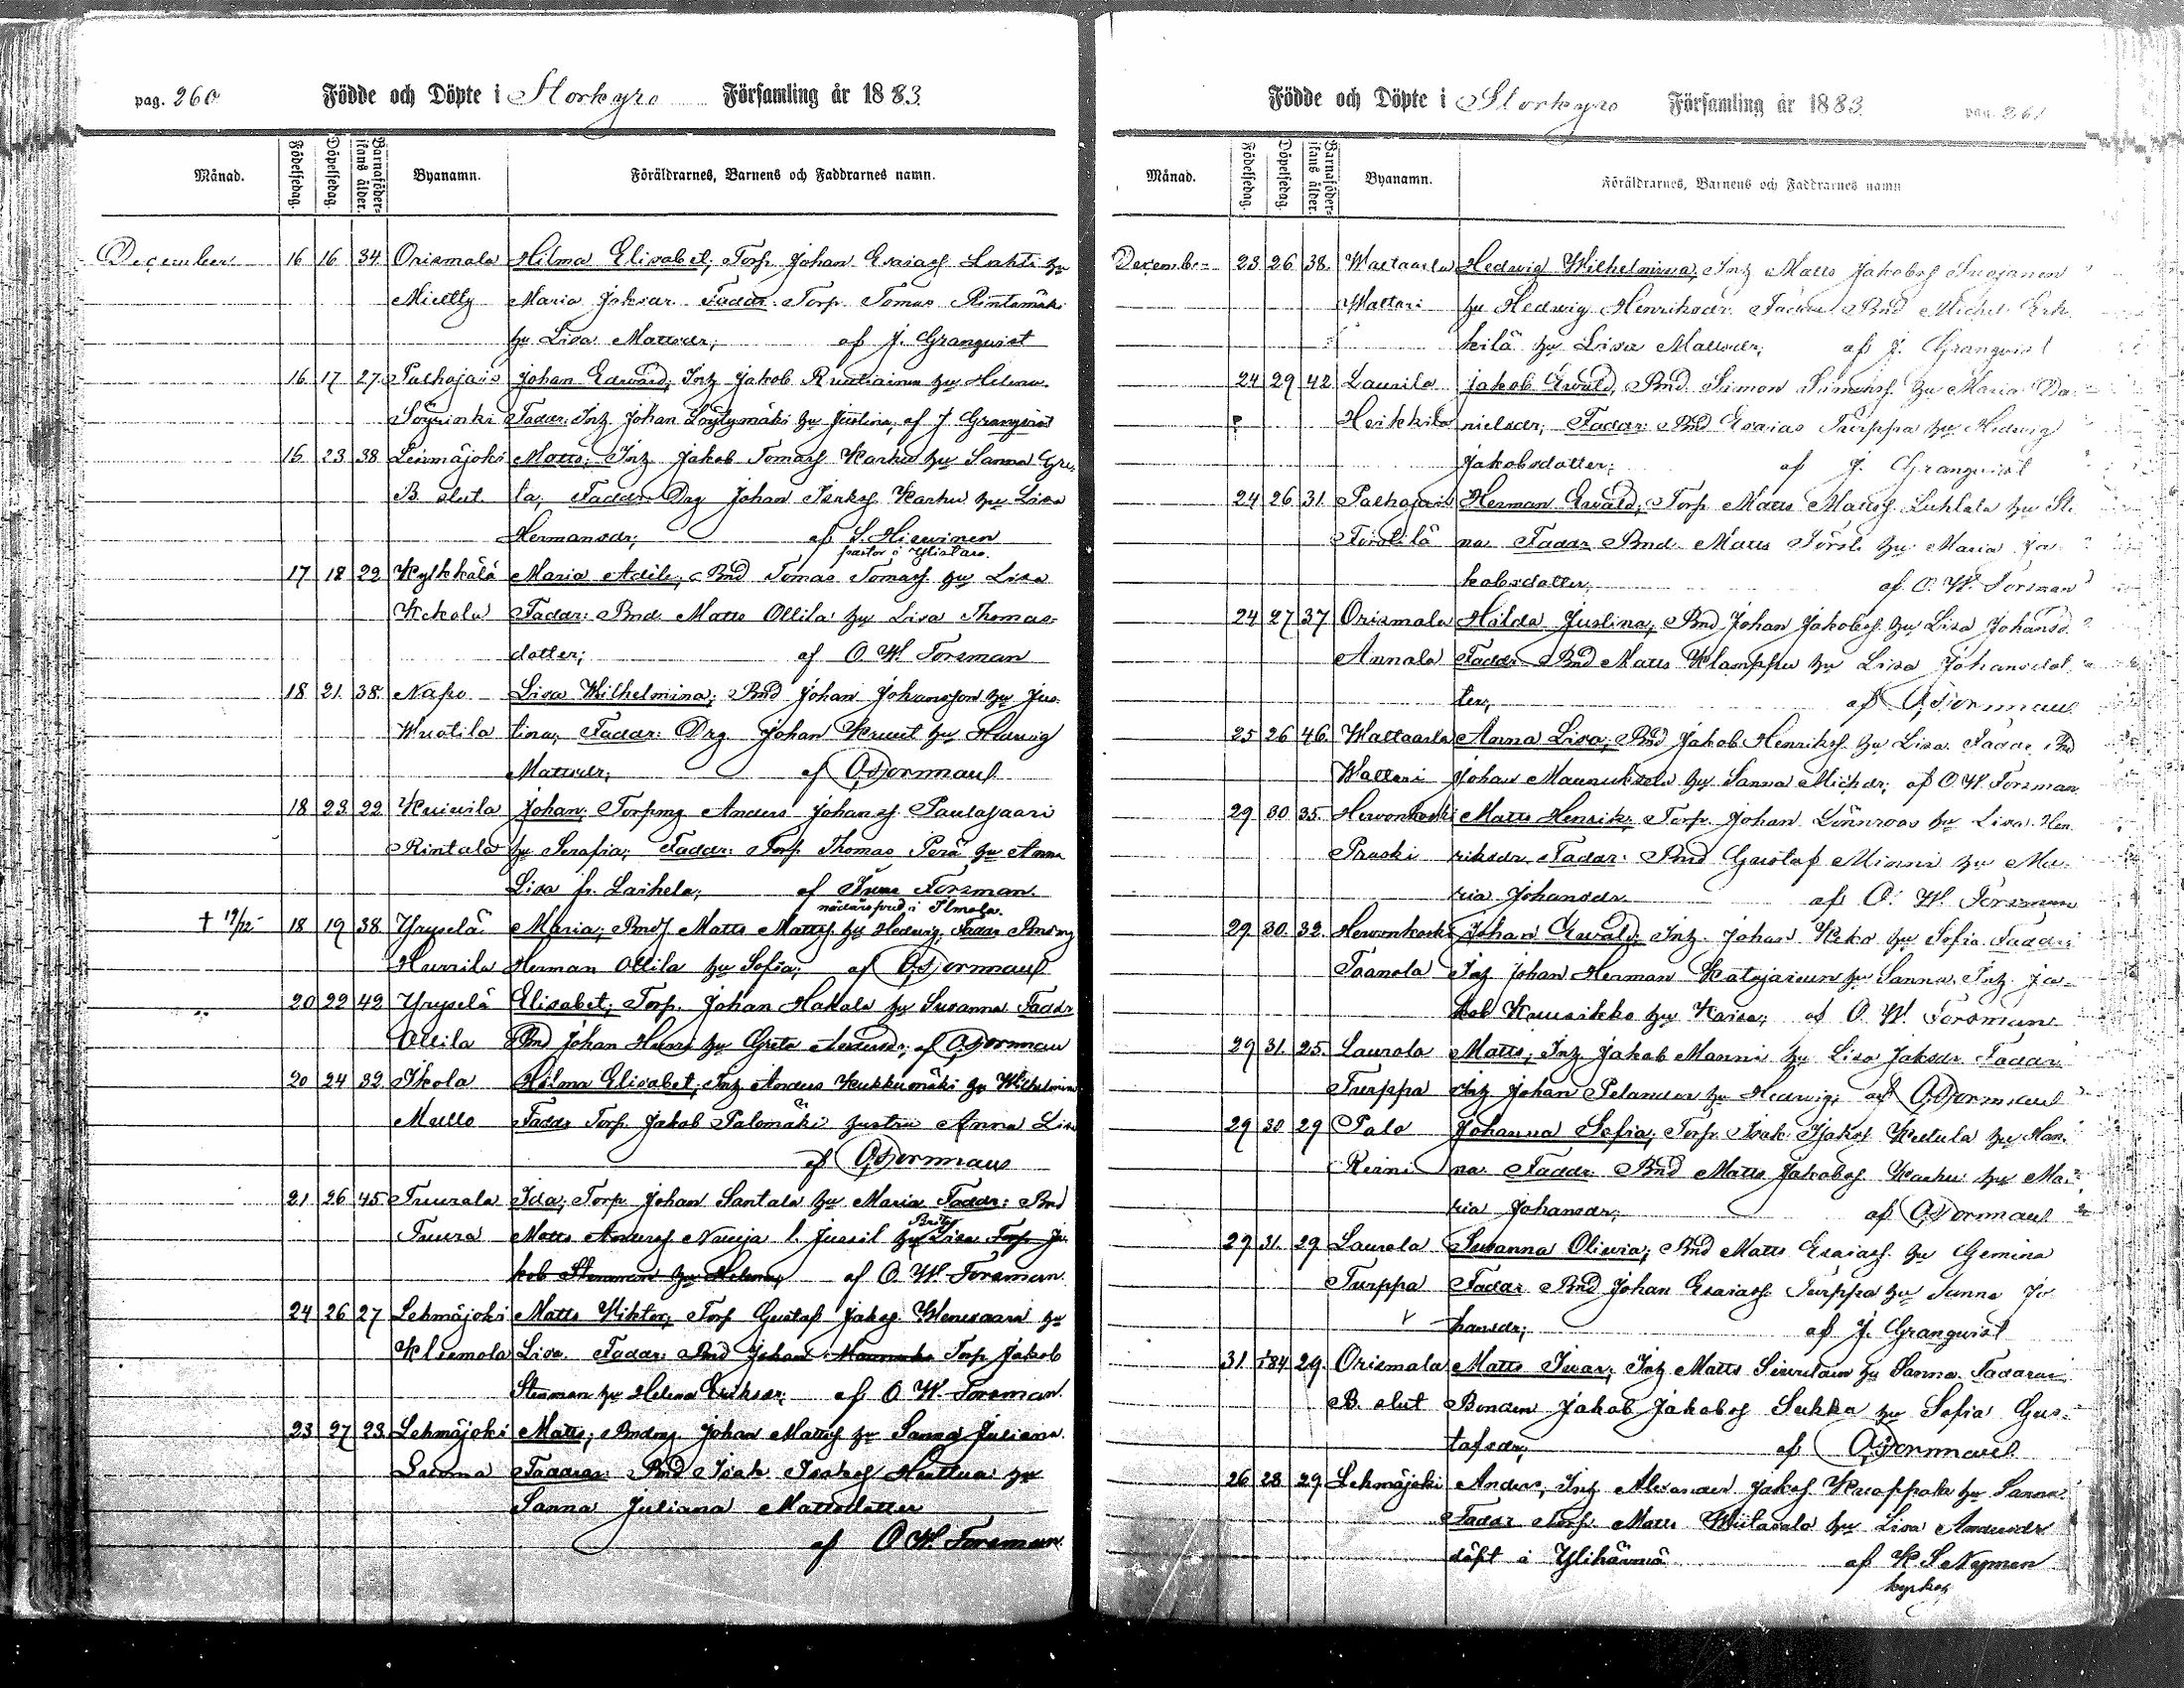 pag. 260 Födde och Döpte i Storkyro Församling år 1883.
Månad. Födelsedag. Döpelsedag. Barnaföderskans ålder. Byanamn. Föräldrarnes, Barnens och Faddrarnes namn.
December 16 16 34 Orismala Hilma Elisabet; Torp. Johan Esaiass Lahti hu
Mietty Maria Jaksdr. Faddr. Torp. Tomas Rintamäki
hu Lisa Mattsdr; af J. Granqvist
16 17 27. Palhojais Johan Edward; Inh Jakob hu Helena
Söyrinki Faddr: Inh Johan Löytymäki hu Justina, af J Granqvist
16 23 38 Lehmäjoki Matts; Inh Jakob Tomass Karhu hu Sanna Gre
B. slut ta; Faddr: Drg Johan Karhu hu Lisa
Hermansdr; af S. Hirvinen
pastor i Ylistaro.
17 18 22 Kylkkälä Maria Adele; Bnd Tomas Tomass hu Lisa
Kekola Faddr: Bnd. Matts Ollila hu Lisa Thomas
dotter; af O. W. Forsman
18 21. 38. Napo Lisa Wilhelmina; Bnd Johan Johansson hu Jus
Wuotila tina; Faddr: Drg. Johan hu Hedwig
Mattsdr; af
18 23 22 Kuiwila Johan; Torpmg Anders Johans Pautasaari
Rintala hu Serafia; Faddr: Torp Thomas Perä hu Anna
Lisa fr. Laihela; af Forsman.
nådårspred i Ilmola.
† 19/12 18 19 38. Yryselä Maria; Bnd Matts Matts hu Hedwig; Faddr Bndmg
Hurrila Herman Ollila hu Sofia; af
20 22 42 Yryselä Elisabet; Torp. Johan Hakola hu Susanna Faddr
Ollila Bnd Johan hu Greta Andersdr; af
20 24 32 Ikola Hilma Elisabet; Inh Anders Kukkumäki hu Wilhelmina
Mullo Faddr Torp Jakob Palomäki hustru Anna Lisa
af
21 26 45 Tuurala Ida; Torp Johan Santala hu Maria Faddr: Bnd
Tuura Matts Anderss l. Jussil hu Brita Lisa Torp Ja
kob Stenman hu Helena; af O. W. Forsman
24 26 27 Lehmäjoki Matts Wiktor; Torp Gustaf Jaks. Wenesaari hu
Kliemola Lisa. Faddr: Bnd Johan Torp Jakob
Stenman hu Helena Eriksdr; af O W. Forsman.
23 27 23. Lehmäjoki Matts; Bndmg Johan Matts hu Sanna Juliana.
Luoma Faddrar: Bnd Isak hu
Sanna Juliana Mattsdotter
af O W. Forsman
Födde och Döpte i Storkyro Församling år 1883. pag. 261
Månad. Födelsedag. Döpelsedag. Barnaföderskans ålder. Byanamn. Föräldrarnes, Barnens och Faddrarnes namn
December 23 26 38. Waltaarla Hedwig Wilhelmina; Inh Matts Jakobss Suojanen
Waltari hu Hedwig Henriksdr. Faddr Bnd Michel Erk
kilä hu Lisa Mattsdr; af J. Granqvist
24 29 42 Laurila Jakob Ewald; Bnd. Simon Simonss hu Maria Da
Heikkila nielsdr; Faddr: Bnd Esaias Turppa hu Hedwig
Jakobsdotter; af J. Granqvist
24 26 31. Palhojais Herman Ewald; Torp Matts Matts Luhtala hu St.
Torstila na Faddr. Bnd Matts Torsti hu Maria Ja
kobsdotter; af O. W. Forsman
24 27 37 Orismala Hilda Justina; Bnd Johan Jakobss hu Lisa Johansd.
Annala Faddr Bnd Matts Klamppu hu Lisa Johansdot
ter; af
25 26 46. Waltaarla Anna Lisa; Bnd Jakob Henrikss hu Lisa. Faddr Bnd
Waltari Johan Maunuksela hu Sanna Michdr; af O W. Forsman
29 30 35. Herwonkoski Matts Henrik; Torp. Johan Lönnroos hu Lisa Hen
Pruski riksdr Faddr. Bnd Gustaf Minni hu Ma
ria Johansdr. af O. W. Forsman
29. 30. 32. Herwonkoski Johan Ewald; Inh. Johan Keko hu Sofia Faddr:
Taanola Inh Johan Herman Katajainen hu Sanna. Inh. Ja
kob Kausikko hu Kaisa; af O. W. Forsman
29 31. 25. Laurola Matts; Inh. Jakob Manni hu Lisa Jaksdr Faddr
Turppa Inh Johan Pelander hu Hedwig; af
29 30 29 Palo Johanna Sofia; Torp. Isak Isaks Ketula hu Han
Reini na. Faddr. Bnd Matts Jakobss Karhu hu Ma
ria Johansdr; af
29 31. 29 Laurola Susanna Oliwia; Bnd Matts Esaiass hu Gemina
Turppa Faddr Bnd Johan Esaiass Turppa hu Sanna Jo
hansdr; af J. Granqvist
31. 1/84 29. Orismala Matts Iwar; Inh Matts hu Sanna. Faddrar
B. slut Bonden Jakob Jakobss Sukka hu Sofia Gus
tafsdr; af
26 28 29 Lehmäjoki Anders; Inh Alexander Jakss hu Sanna
Faddr Torp. Matts hu Lisa Andersdr
döpt i Ylihärmä af K. S Nyman
kyrkoh